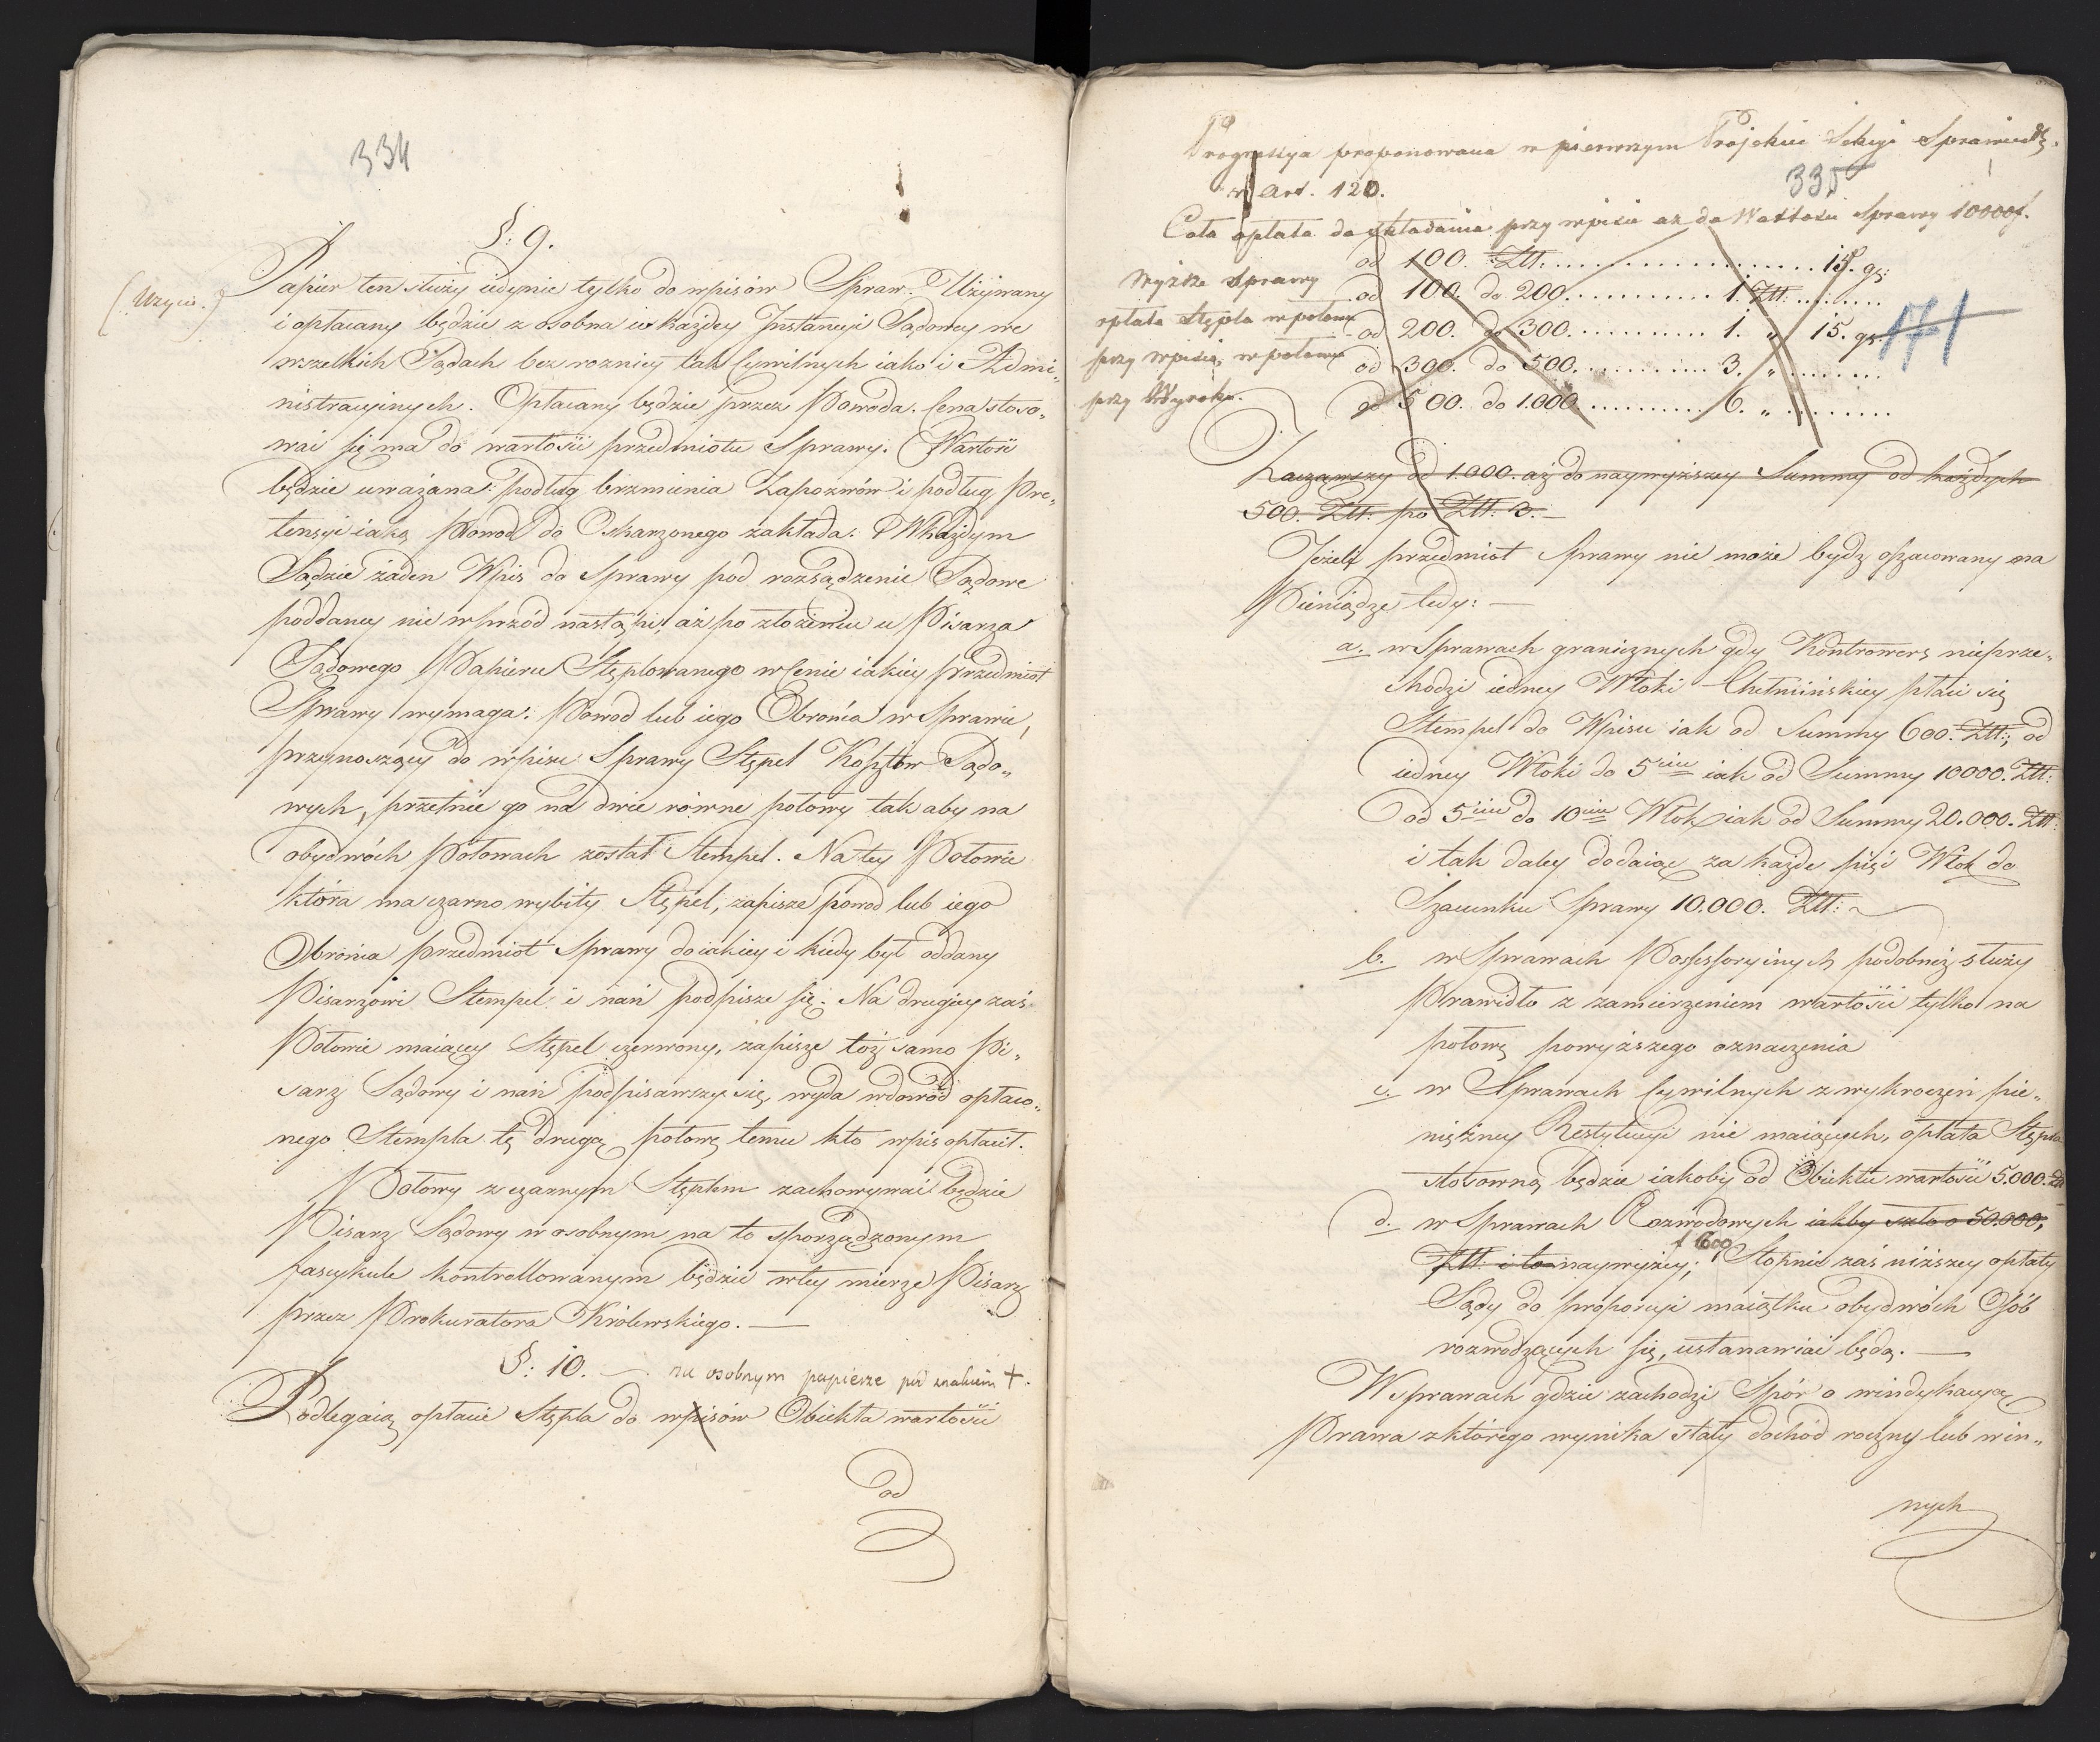 334
§: 9.
(Użycie.)
Papier ten służy iedynie tylko do wpisów Spraw. Używany
i opłacany będzie z osobna w każdey Instancyi Sądowey we
wszelkich Sądach bez roznicy tak Cywilnych iako i Admi„
nistracyinych. Opłacany będzie przez Powoda. Cena stoso„
wać się ma do wartości przedmiotu Sprawy. Wartość
będzie uważana: podług brzmienia Zapozwów i podług Pre„
tensyi iaką Powod do Oskarzonego zakłada. W każdym
Sądzie żaden Wpis do Sprawy pod rozsądzenie Sądowe
poddaney nie wprzód nastąpi, aż po złożeniu u Pisarza
Sądowego Papieru Stęplowanego w Cenie iakiey przedmiot
Sprawy wymaga. Powod lub iego Obrońca w Sprawie,
przynoszący do wpisu Sprawy Stępel Kosztów Sądo„
wych, przetnie go na dwie równe połowy tak aby na
obydwóch Połowach został Stempel. Na tey Połowie
która ma czarno wybity Stępel, zapisze powod lub iego
Obrońca przedmiot Sprawy do iakiey i kiedy był oddany
Pisarzowi Stempel i nań podpisze się. Na drugiey zaś
Połowie maiącey Stępel czerwony, zapisze toż samo Pi„
sarz Sądowy i nań podpisawszy się, wyda w dowód opłaco„
nego Stempla tę drugą połowę temu kto wpis opłacił.
Połowy z czarnym Stęplem zachowywać będzie
Pisarz Sądowy w osobnym na to sporządzonym
fascykule kontrollowanym będzie w tey mierze Pisarz
przez Prokuratora Królewskiego. —
§: 10. — na osobnym papierze pod znakiem +.
Podlegaią opłacie Stępla do wpisów Obiekta wartości
od
Progressya proponowana w pierwszym Projekcie Sekcyi Sprawiedl.
w Art. 120.
335
Cała opłata do składania przy wpisie aż do Wartości Sprawy 10000 f.
Wyższe Sprawy
opłata Stępla w połowie
przy wpisie, w połowie
przy Wyroku.
od 100. Złł: .......... 15. gs:
od 100. do 200. .......... 1. Złł: ..........
od 200. do 300. .......... 1. „ 15. gs:
od 300. do 500. .......... 3. „ ..........
od 500. do 1.000. .......... 6. „ ..........
171
Zacząwszy od 1.000. aż do naywyższey Summy od każdych
500. Złł: po Złł: 3. —
Jeżeli przedmiot Sprawy nie może bydź oszacowany na
Pieniądze tedy: —
a. w Sprawach granicznych gdy Kontrowers nieprze„
chodzi iedney Włoki Chełmińskiey płaci się
Stempel do Wpisu iak od Summy 600. Złł:, od
iedney Włoki do 5ciu iak od Summy 10000. Złł:
od 5ciu do 10ciu Włok iak od Summy 20.000. Złł:
i tak daley dodaiąc za każde pięć Włok do
Szacunku Sprawy 10.000. Złł:
b. w Sprawach Possessoryinych podobnież służy
Prawidło z zamierzeniem wartości tylko na
połowę powyższego oznaczenia
c. w Sprawach Cywilnych z wykroczeń pie„
niężney Restytucyi nie maiących, opłata Stępla
stosowną będzie iakoby od Obiektu wartości 5.000. Złł
d. w Sprawach Rozwodowych iakby szło o 50.000,
f 600
Złł: i to naywyżey; Stopnie zaś niższey opłaty
Sądy do proporcyi maiątku obydwóch Osób
rozwodzących się, ustanawiać będą. —
W sprawach gdzie zachodzi Spór o windykacyą
Prawa z którego wynika stały dochód roczny lub win„
nych